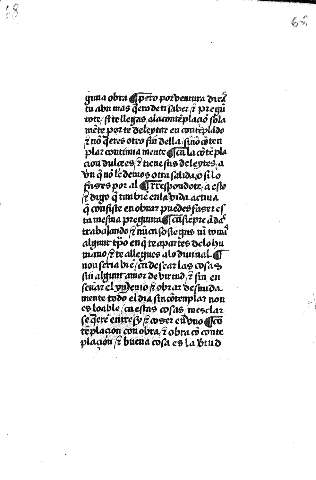 68
guna obra ¶ pero por ventura dira
tu aun mas q̃rer de ti saber, ⁊ pregũ
tote, si te llegas ala contẽplacio sola
mẽte por te deleytar en contẽplãdo
⁊ nõ q̃eres otro fin della, sinõ cõten
plar continua mente ¶ Ca la cõtẽpla
cion dulce es, ⁊ tiene sus deleytes, a
vn q̃ nõ le demos otra salida, o si lo
fazes por al ¶ Respondote, a esto
⁊ digo q̃ tanbiẽ en la vida actiua
q̃ consiste en obrar puedes fazer es
ta mesma pregunta ¶
trabajando, ⁊ nũca sosiegas nĩ tomas
algunt tpõ en q̃ te apartes delo hu
mano, ⁊ te allegues alo diuinal ¶
non seria biẽ, en desear las cosas
sin algunt amor de virtud, ⁊ sin en
señar el yngenio, ⁊ obrar desnuda
mente todo el dia sin cõtemplar non
es loable, ca estas cosas mesclar
se q̃erẽ entre sy, ⁊ coser en vno ¶ cõ
tẽplacion con obra, ⁊ obra cõ conte
plaçion, ⁊ buena cosa es la virtud